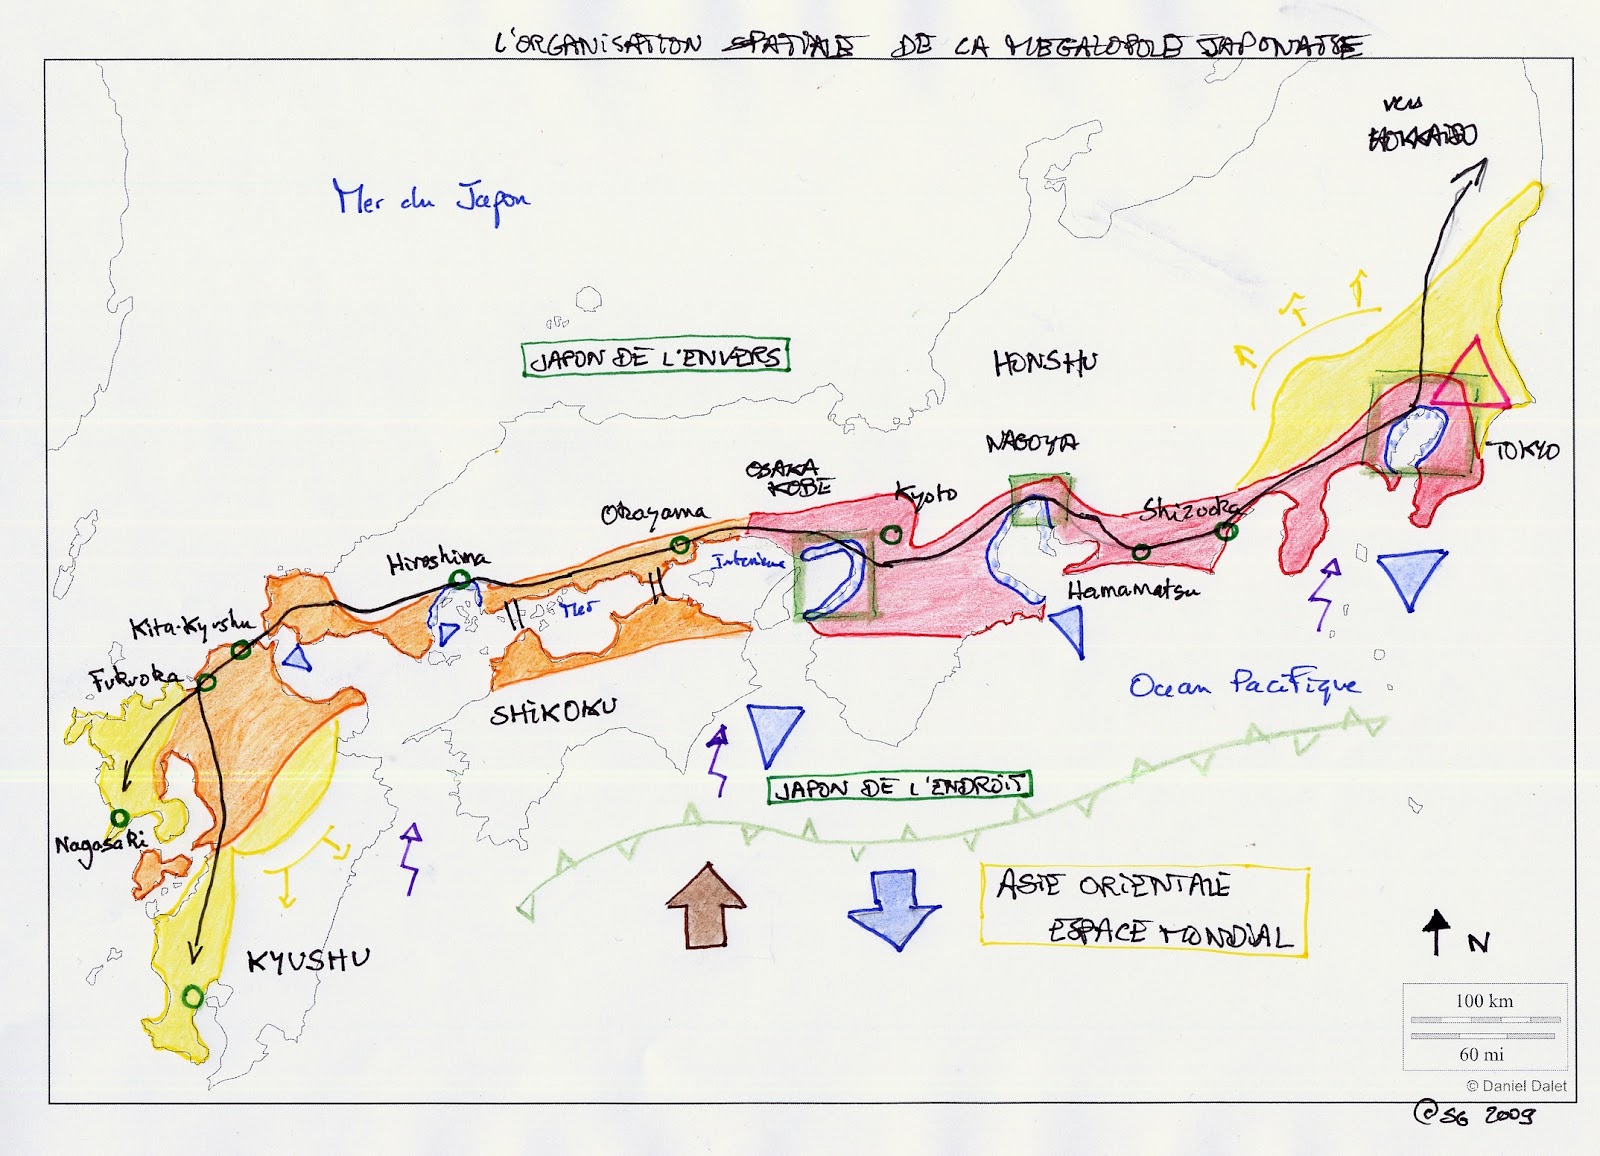 L'ORGANISATION SPATIALE DE LA MEGALOPOLE JAPONAISE
vers
HOKKAIDO
Mer du Japon
JAPON DE L'ENVERS
HONSHU
NAGOYA
TOKYO
OSAKA
KOBE
Kyoto
Okayama
Shizuoka
Hiroshima
Interieure
Mer
Hamamatsu
Kita-Kyushu
Fukuoka
Ocean Pacifique
SHIKOKU
JAPON DE L'ENDROIT
Nagasaki
ASIE ORIENTALE
ESPACE MONDIAL
KYUSHU
N
100 km
60 mi
© Daniel Dalet
© SG 2009